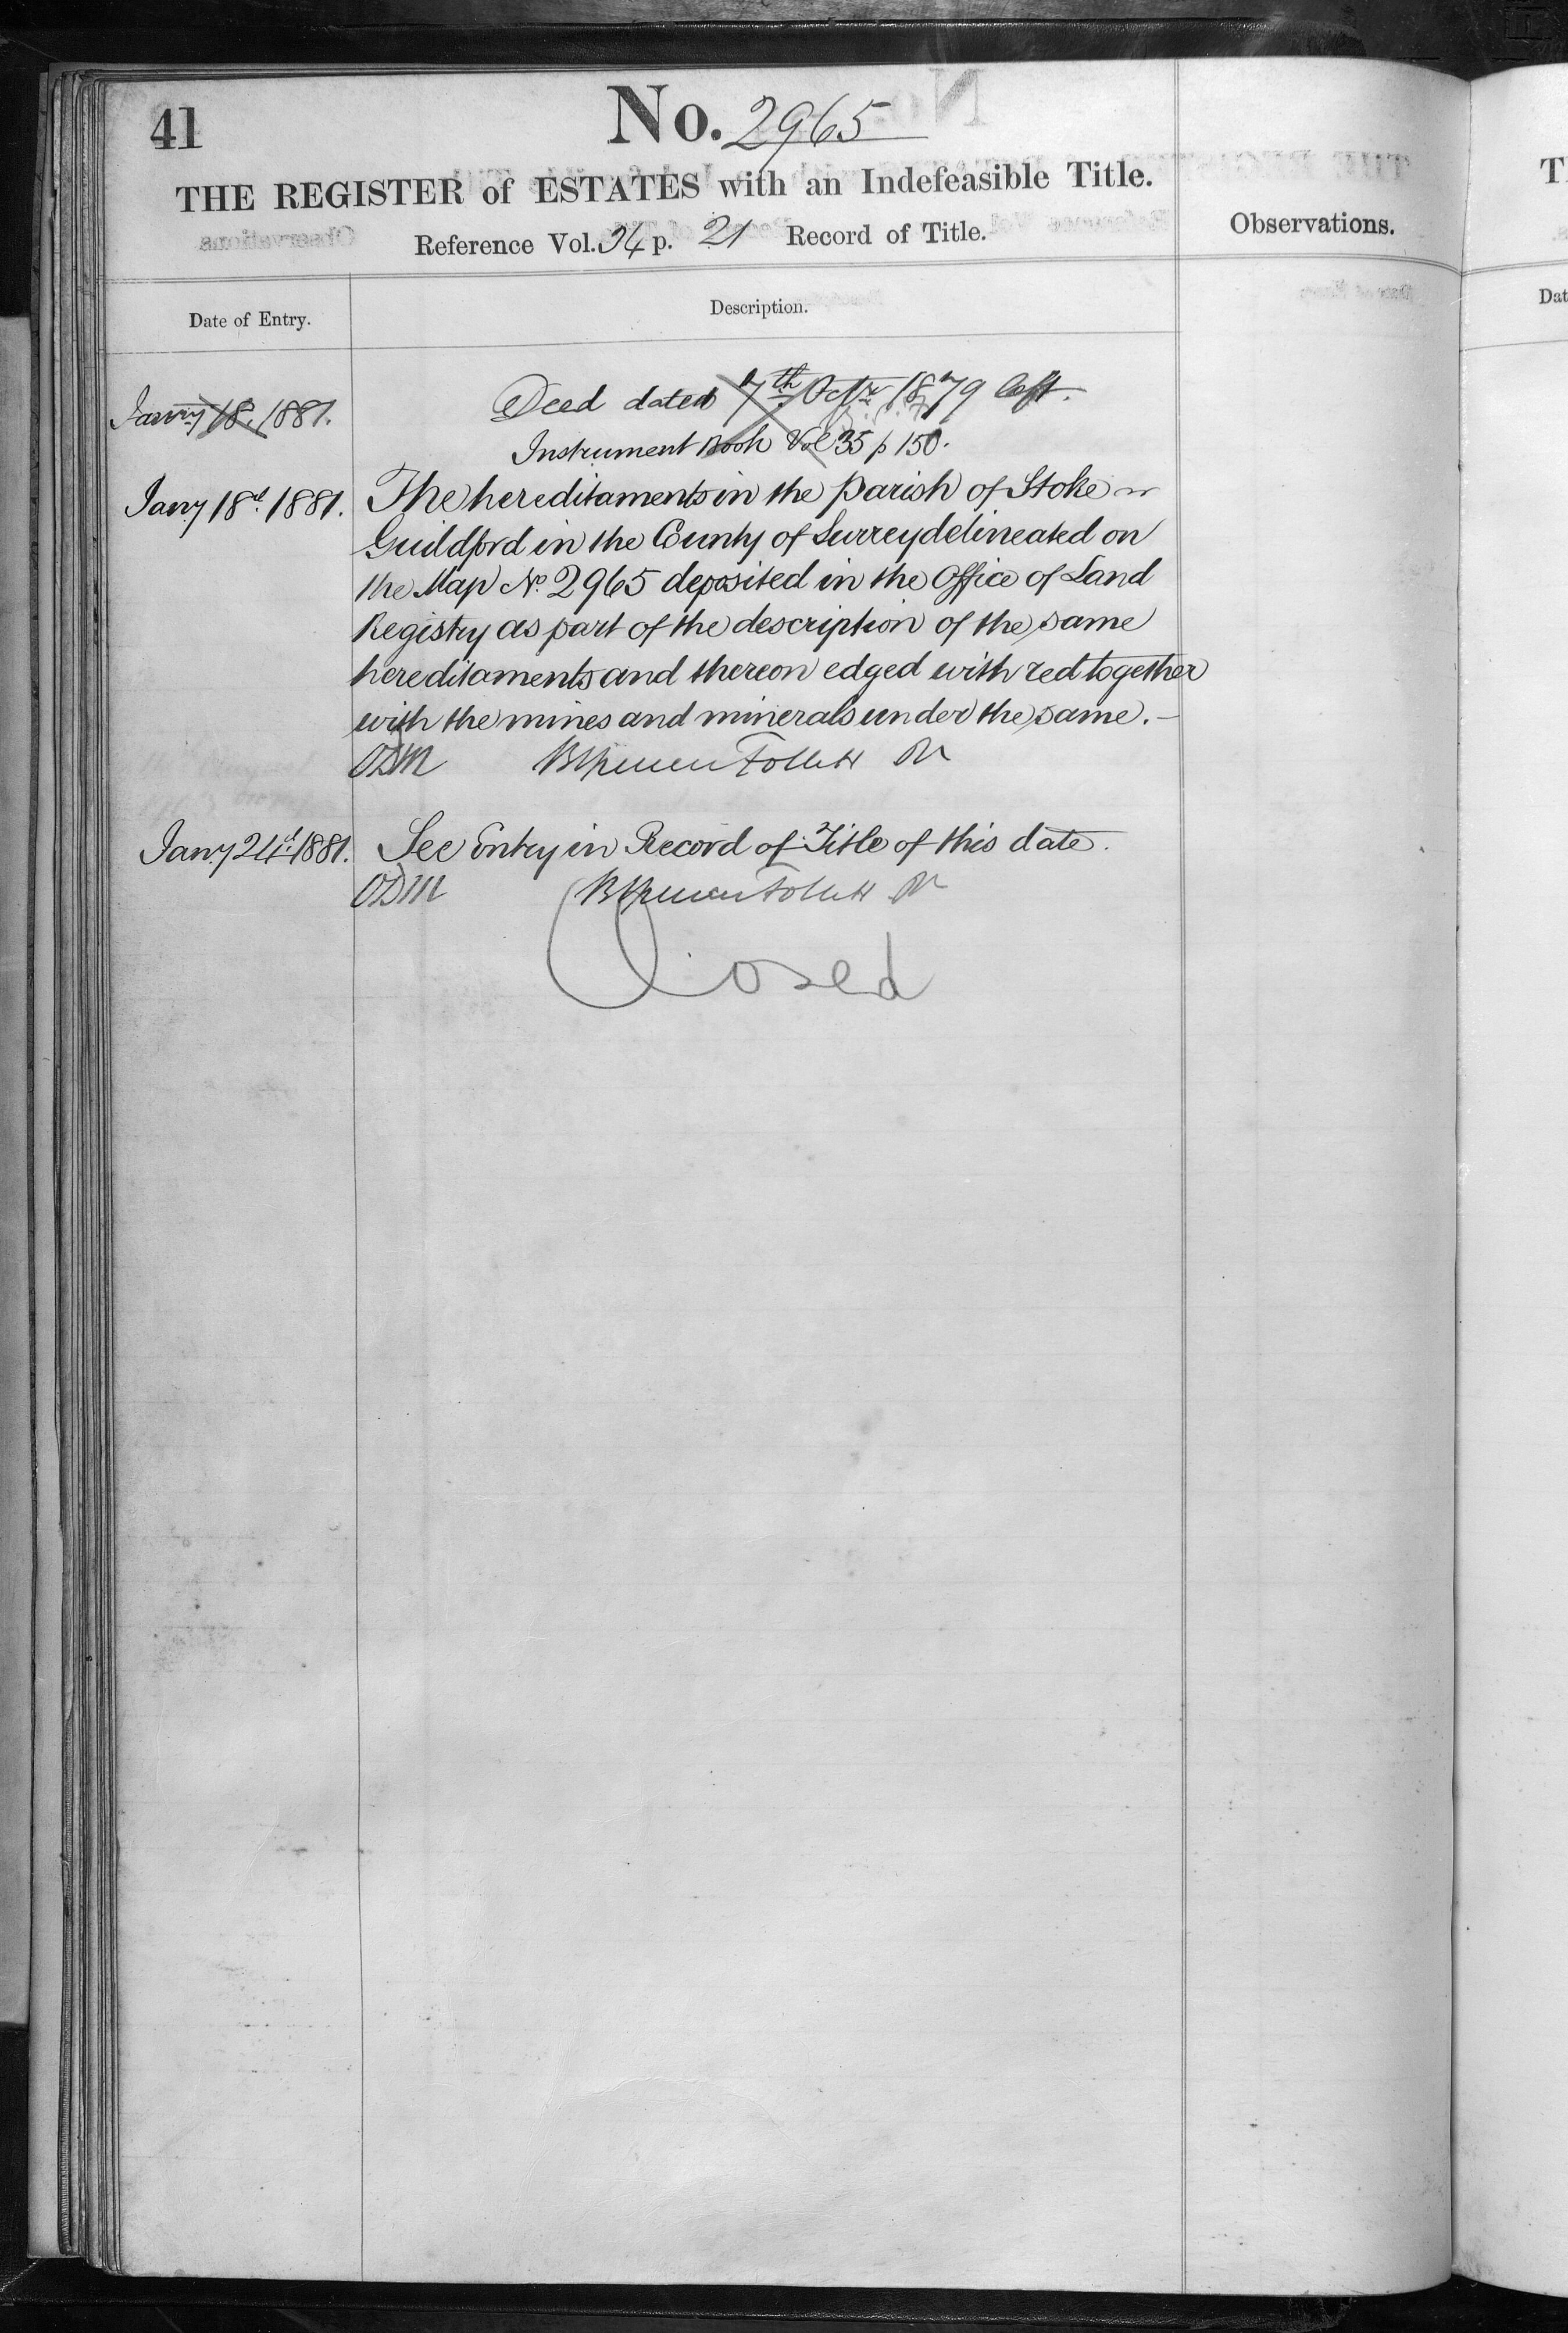 41
No. 2965
THE REGISTER of ESTATES with an Indefeasible Title.
Reference Vol. 34 p. 21 Record of Title.
Observations.
Date of Entry.
Description.
Janry 18. 1881.
Deed dated 7th Octr 1879 left.
Instrument Book Vol 35 p 150.
Jany 18th 1881.
The hereditaments in the parish of Stoke
Guildford in the County of Surrey delineated on
the Map No. 2965 deposited in the Office of Land
Registry as part of the description of the same
hereditaments and thereon edged with red together
with the mines and minerals under the same. -
ODM Follett R
Jany 24th 1881.
See Entry in Record of Title of this date.
ODM Follett R
Closed